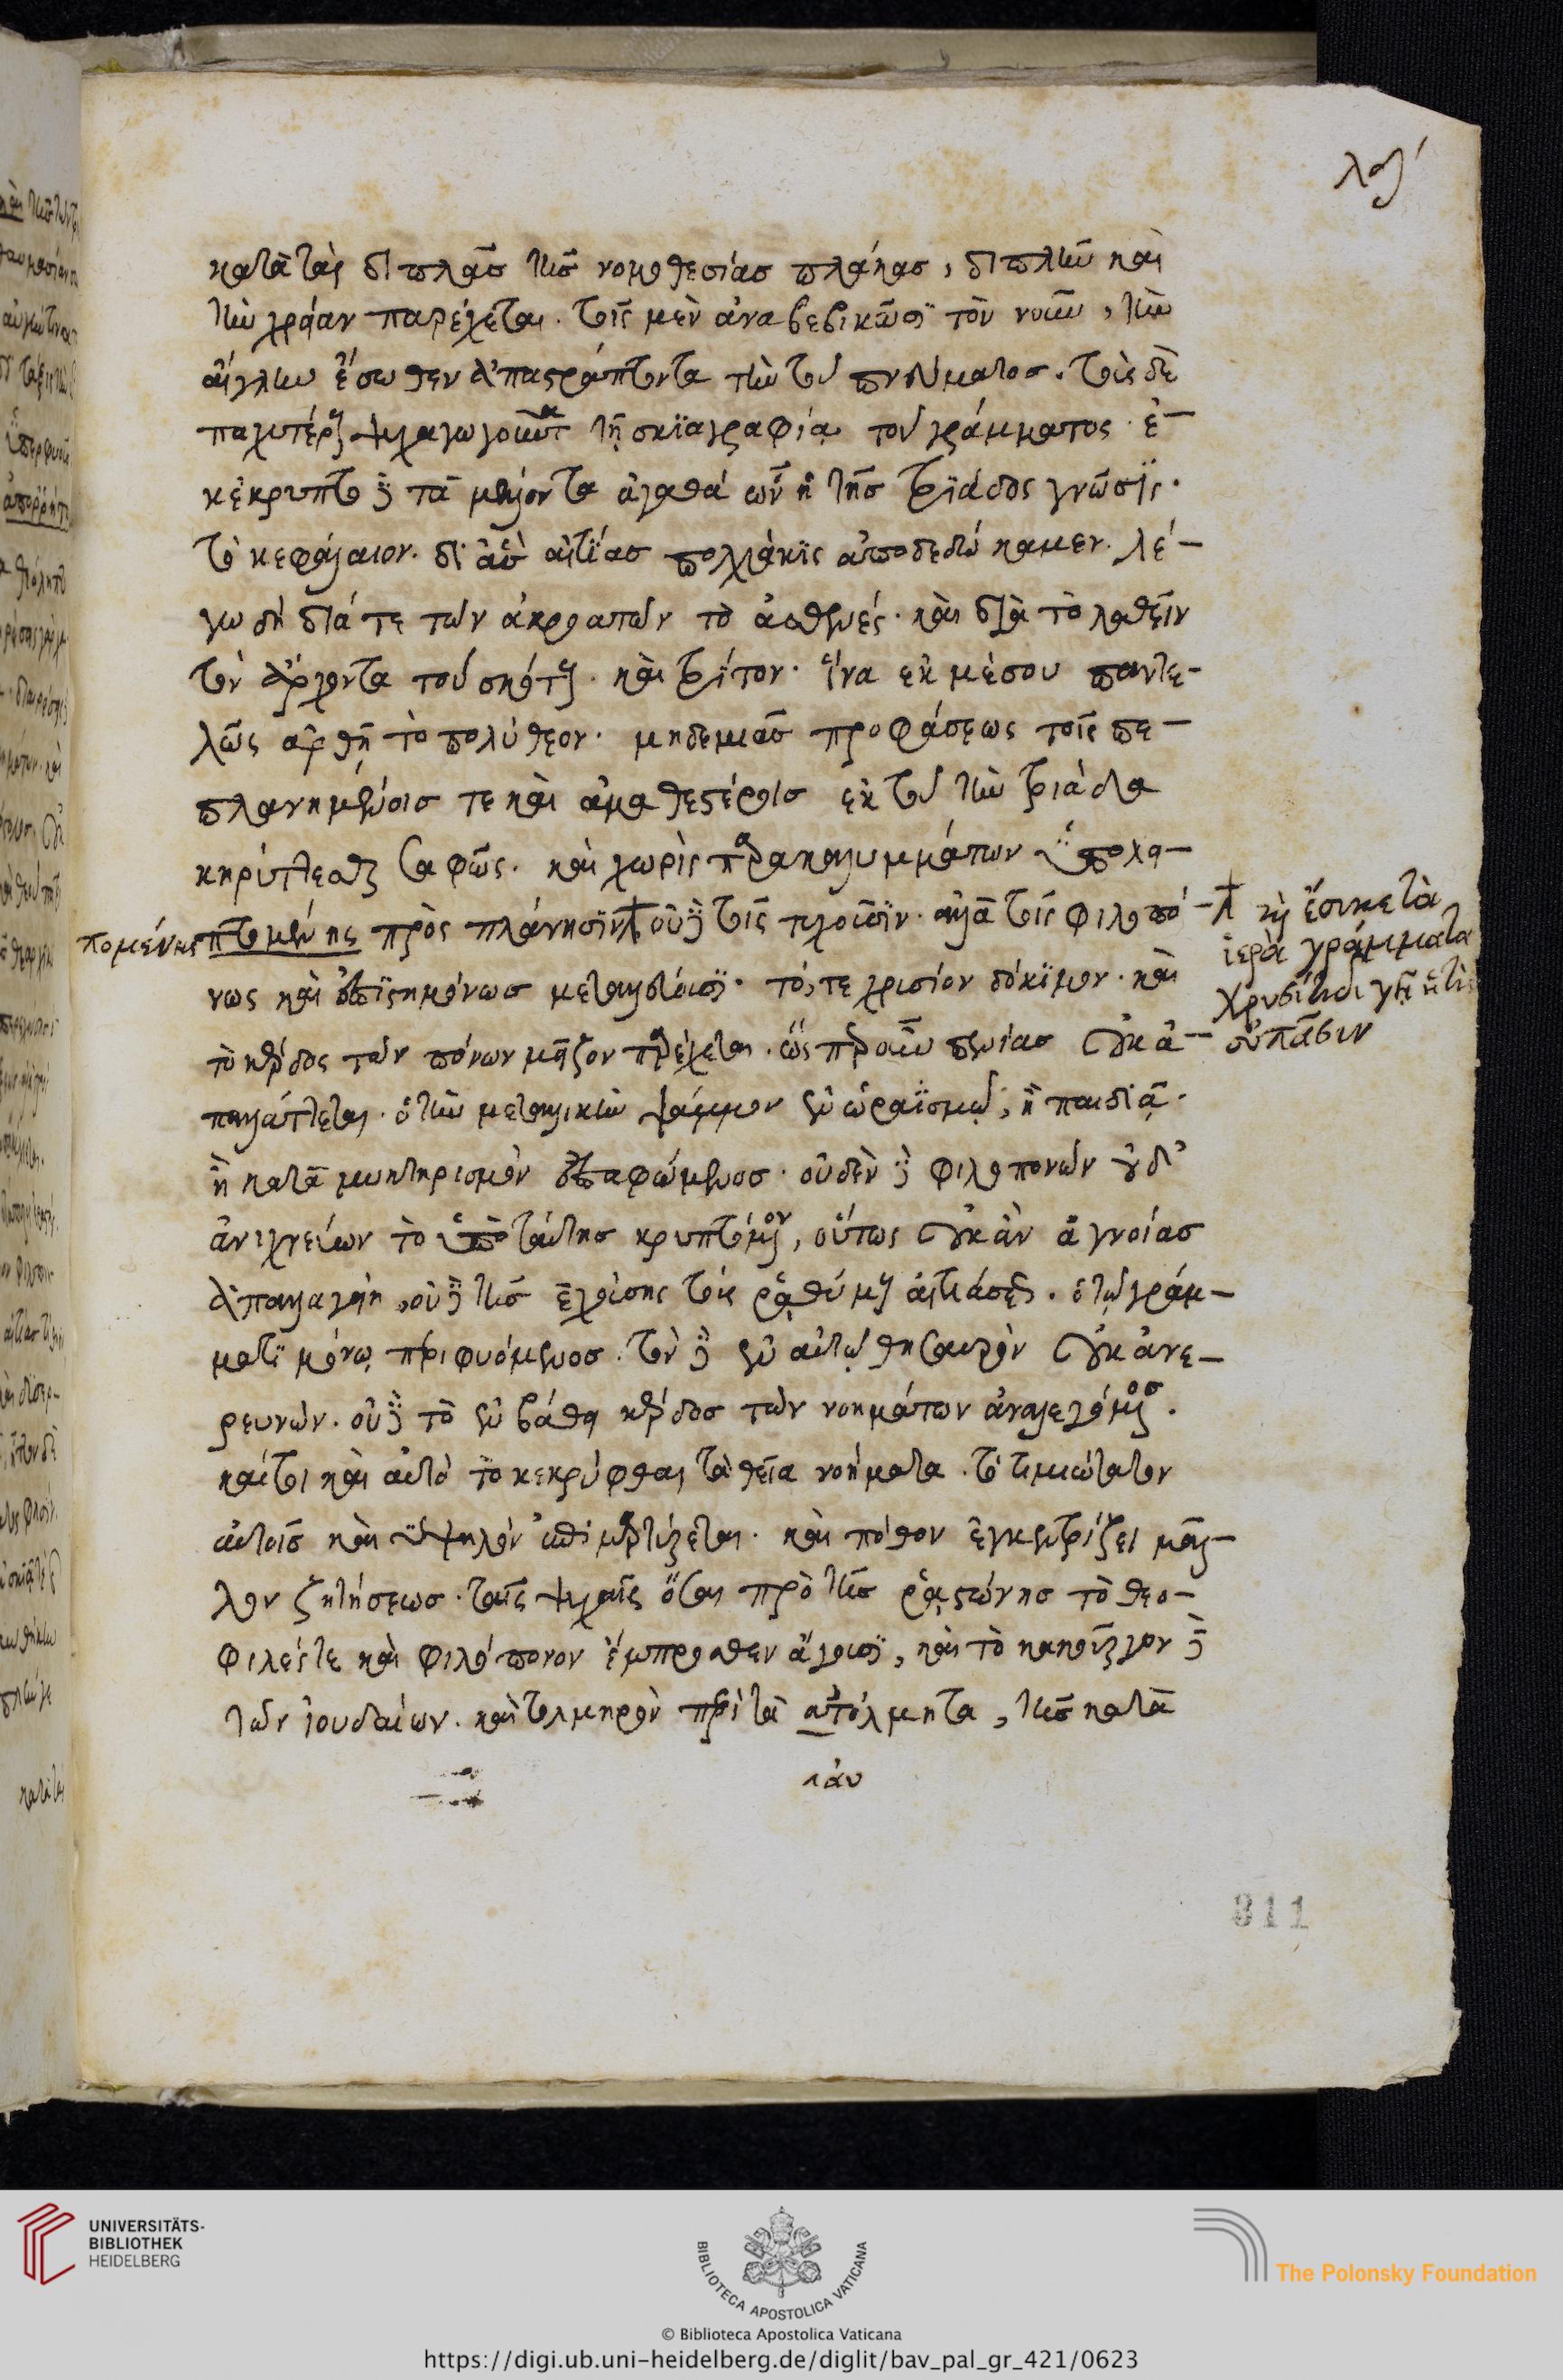 κατὰ τὰς διπλᾶς τῆς νομοθεσίας πλάκας, διπλῆν καὶ
τὴν χρείαν παρέχεται. τοῖς μὲν ἀναβεβηκόσι τὸν νοῦν, τὴν
αἴγλην ἔσωθεν ἀπαστράπτοντα τὴν τοῦ πνεύματος. τοῖς δὲ
παχυτέροις ψυχαγωγοῦντα τῇ σκιαγραφίᾳ τοῦ γράμματος. ἐ-
κέκρυπτο γὰρ τὰ μέλλοντα ἀγαθά ὧν ἡ τῆς τριάδος γνῶσις.
τὸ κεφάλαιον. δι' ἃς αἰτίας πολλάκις ἀποδεδώκαμεν. λέ-
γω δὴ διά τε τῶν ἀκροατῶν τὸ ἀσθενές. καὶ διὰ τὸ λαθεῖν
τὸν ἄρχοντα τοῦ σκότους. καὶ τρίτον. ἵνα ἐκ μέσου παντε-
λῶς ἀρθῇ τὸ πολύθεον. μηδεμιᾶς προφάσεως τοῖς πε-
πλανημένοις τε καὶ ἀμαθεστέροις ἐκ τοῦ τὴν τριάδα
κηρύττεσθαι σαφῶς. καὶ χωρὶς παρακαλυμμάτων ὑπολα-
πτομένης πρὸς πλάνησιν οὐ γὰρ τοῖς πλοῦσιν. ἀλλὰ τοῖς φιλοπό-
πομένης
νως καὶ ἐπιστημόνως μεταλλεύουσι. τό,τε χρυσίον δόκιμον. καὶ
τὸ κέρδος τῶν πόνων μεῖζον παρέχεται. ὥσπερ οὖν πενίας οὐκ ἀ-
παλλάττεται. ὁ τὴν μεταλλικὴν ψάμμον ἐν ὡραϊσμῷ, ἢ παιδιᾷ.
ἢ κατὰ μυκτηρισμὸν ἐπαφώμενος. οὐδὲν γὰρ φιλοπονῶν οὐδ'
ἀνιχνεύων τὸ ὑπὸ ταύτης κρυπτόμενον, οὕτως οὐκ ἂν ἀγνοίας
ἀπαλλαγείη, οὐ γὰρ τῆς τοῖς ῥᾳθύμοις ὁ τῷ γράμ-
ματι μόνῳ περιφυόμενος. τὸν γὰρ ἐν αὐτῷ θησαυρὸν οὐκ ἀνε-
ρευνῶν. οὐ γὰρ τὸ ἐν βάθει κέρδος τῶν νοημάτων ἀναλεγόμενος.
καίτοι καὶ αὐτὸ τὸ κεκρύφθαι τὰ θεῖα νοήματα. τὸ τιμιώτατον
αὐτοῖς καὶ ὑψηλὸν ἐπιμαρτύρεται. καὶ πόθον ἐγκεντρίζει μᾶλ-
λον ζητήσεως. ταῖς ψυχαῖς ὅσαι πρὸ τῆς ῥᾳστώνης τὸ θεο-
φιλές τε καὶ φιλόπονον ἔμπροσθεν ἄγουσι, καὶ τὸ κακοῦργον γὰρ
τῶν ἰουδαίων. καὶ τολμηρὸν περὶ τὰ ἀτόλμητα, τῆς κατὰ
ἱερὰ γράμματα
χρυσίτιδι γῇ
σύμπασιν
811
UNIVERSITÄTS-
BIBLIOTHEK
HEIDELBERG
BIBLIOTECA APOSTOLICA VATICANA
The Polonsky Foundation
© Biblioteca Apostolica Vaticana
https://digi.ub.uni-heidelberg.de/diglit/bav_pal_gr_421/0623